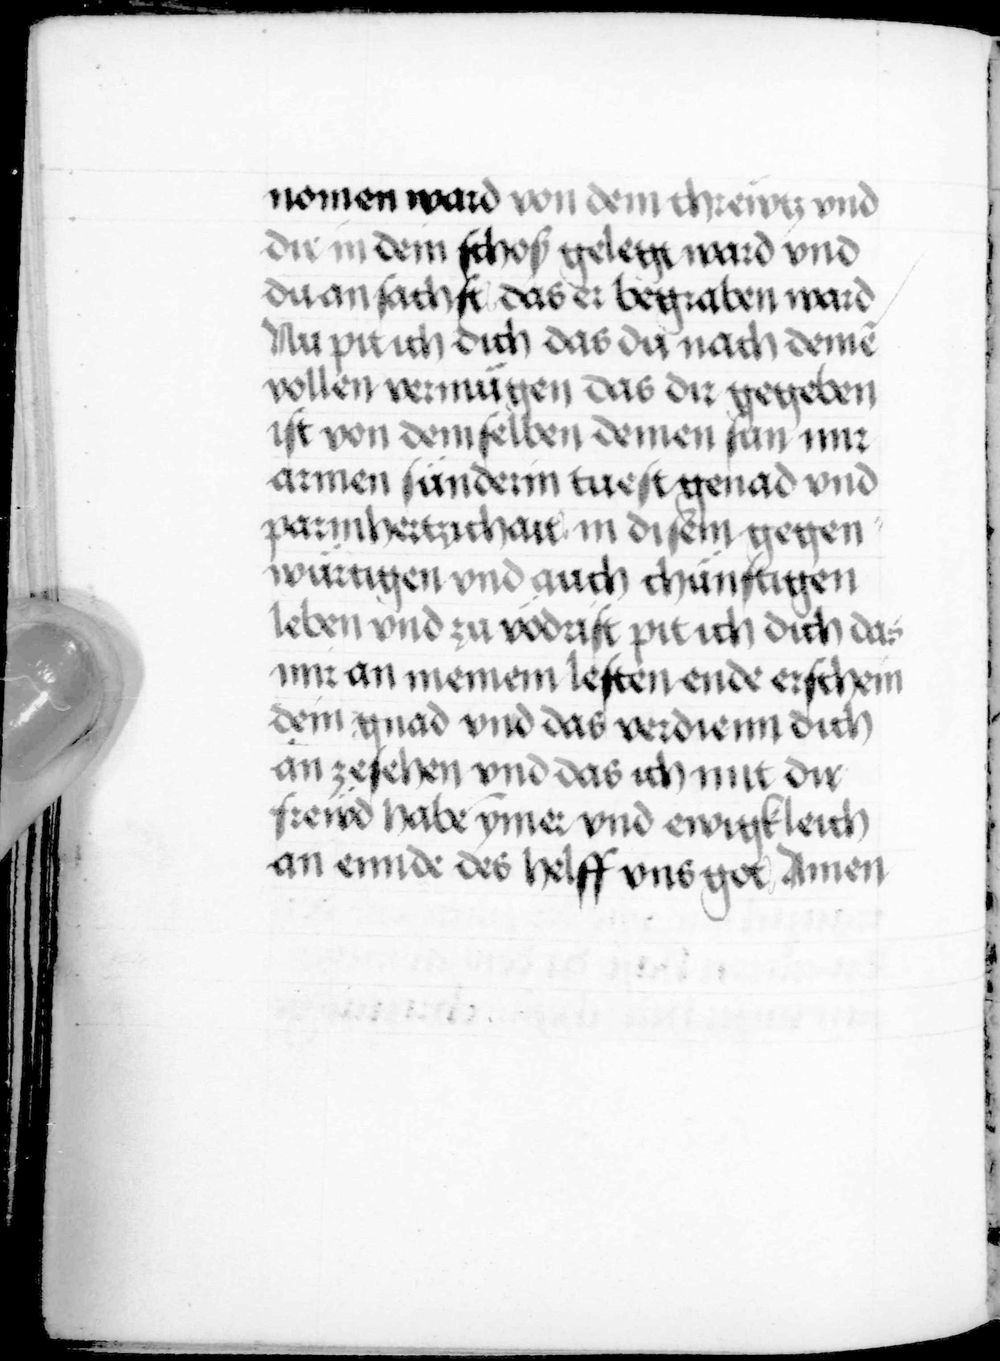 nomen ward von dem chreiwtz vnd
dir in dein schoß gelegt ward vnd
du an sachst das er begraben ward
Nu pit ich dich das du nach deinē
vollen vermügen das dir gegeben
ist von demselben deinen sun mir
armen sünderin tuest genad vnd
parmhertzichait in disem gegen
würtigen vnd auch chünftigen
leben vnd zu vödrist pit ich dich das
mir an meinem lesten ende erschein
dein gnad vnd das verdienn dich
an zesehen vnd das ich mit dir
freẅd habe ymer vnd ewigkleich
an ennde des helff vns got Amen